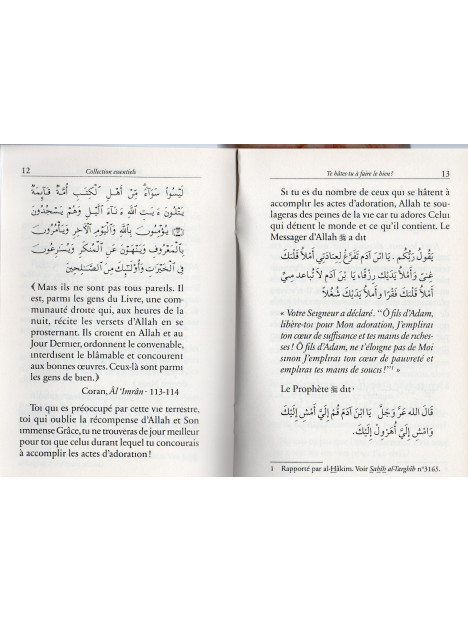 12 Collection essentiels
لَيْسُوا۟ سَوَآءً مِّنْ أَهْلِ ٱلْكِتَـٰبِ أُمَّةٌ قَآئِمَةٌ
يَتْلُونَ ءَايَـٰتِ ٱللَّهِ ءَانَآءَ ٱلَّيْلِ وَهُمْ يَسْجُدُونَ
۝١١٣ يُؤْمِنُونَ بِٱللَّهِ وَٱلْيَوْمِ ٱلْـَٔاخِرِ وَيَأْمُرُونَ
بِٱلْمَعْرُوفِ وَيَنْهَوْنَ عَنِ ٱلْمُنكَرِ وَيُسَـٰرِعُونَ
فِى ٱلْخَيْرَٰتِ وَأُو۟لَـٰٓئِكَ مِنَ ٱلصَّـٰلِحِينَ
﴾Mais ils ne sont pas tous pareils. Il
est, parmi les gens du Livre, une com-
munauté droite qui, aux heures de la
nuit, récite les versets d'Allah en se
prosternant. Ils croient en Allah et au
Jour Dernier, ordonnent le convenable,
interdisent le blâmable et concourent
aux bonnes œuvres. Ceux-là sont parmi
les gens de bien.﴿
Coran, Âl 'Imrân · 113-114
Toi qui es préoccupé par cette vie terrestre,
toi qui oublie la récompense d'Allah et Son
immense Grâce, tu ne trouveras de jour meilleur
pour toi que celui durant lequel tu concourais
à accomplir les actes d'adoration !
Te hâtes-tu à faire le bien ? 13
Si tu es du nombre de ceux qui se hâtent à
accomplir les actes d'adoration, Allah te sou-
lageras des peines de la vie car tu adores Celui
qui détient le monde et ce qu'il contient. Le
Messager d'Allah ﷺ a dit
يَقُولُ رَبُّكُم . يَا ابْنَ آدَمَ تَفَرَّغْ لِعِبَادَتِي أَمْلَأْ قَلْبَكَ
غِنًى وَأَمْلَأْ يَدَيْكَ رِزْقًا، يَا ابْنَ آدَمَ لَا تُبَاعِدْ مِنِّي
أَمْلَأْ قَلْبَكَ فَقْرًا وَأَمْلَأْ يَدَيْكَ شُغْلًا
« Votre Seigneur a déclaré . "Ô fils d'Adam,
libère-toi pour Mon adoration, J'emplirai
ton cœur de suffisance et tes mains de riches-
ses ! Ô fils d'Adam, ne t'éloigne pas de Moi
sinon J'emplirai ton cœur de pauvreté et
emplirai tes mains de soucis !"¹ »
Le Prophète ﷺ dit·
قَالَ الله عَزَّ وَجَلَّ يَا ابْنَ آدَمَ قُمْ إِلَيَّ أَمْشِ إِلَيْكَ
وَامْشِ إِلَيَّ أُهَرْوِلْ إِلَيْكَ
1 Rapporté par al-Hâkim. Voir Sahîh al-Targhîb n°3165.